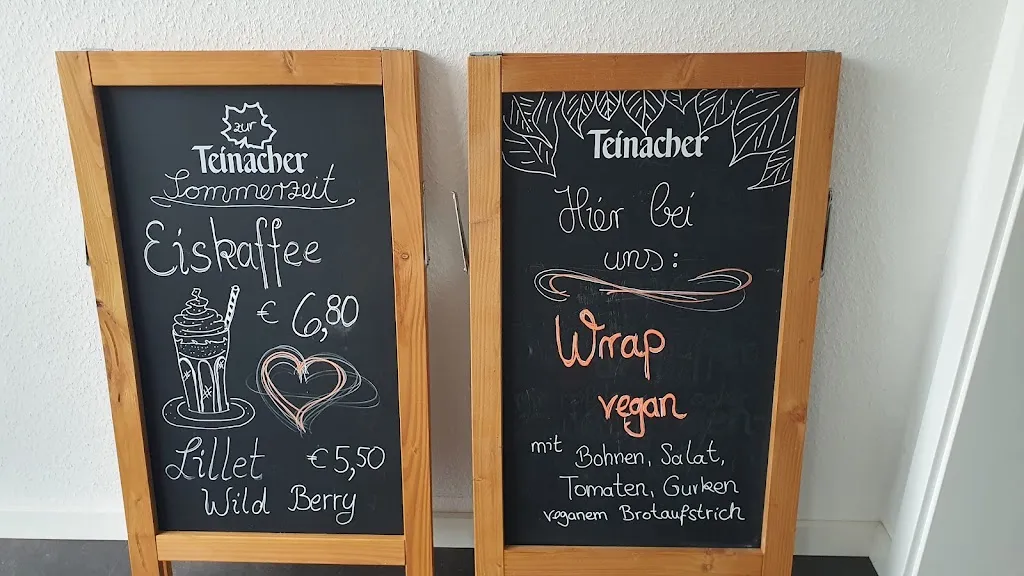 zur
Teinacher
Sommerzeit
Eiskaffee
€ 6,80
Lillet € 5,50
Wild Berry
Teinacher
Hier bei
uns:
Wrap
vegan
mit Bohnen, Salat,
Tomaten, Gurken
veganem Brotaufstrich